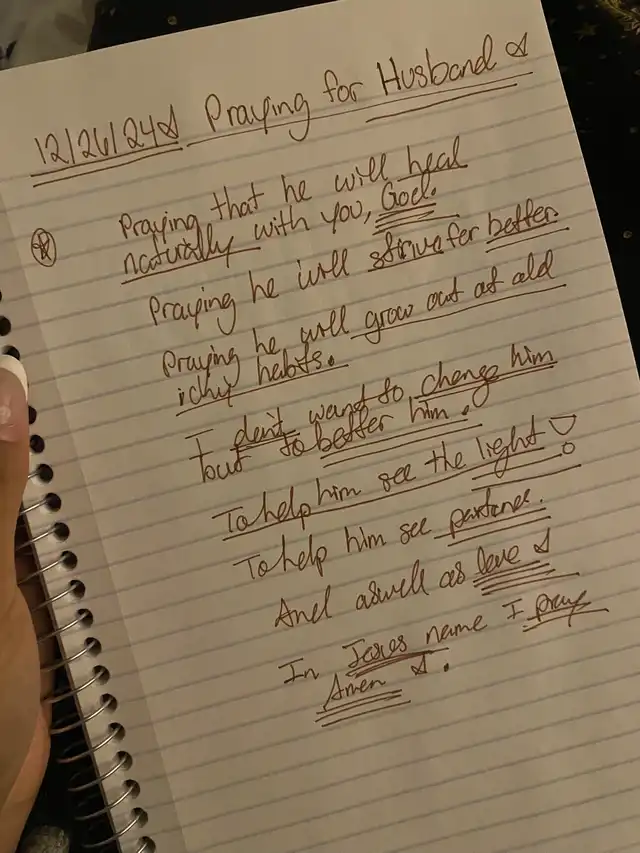 12/26/24 Praying for Husband
Praying that he will heal
naturally with you, God.
Praying he will strive for better.
Praying he will grow out of old
icky habits.
I don't want to change him
but to better him.
To help him see the light!
To help him see
And aswell as love
In Jesus name I pray
Amen.